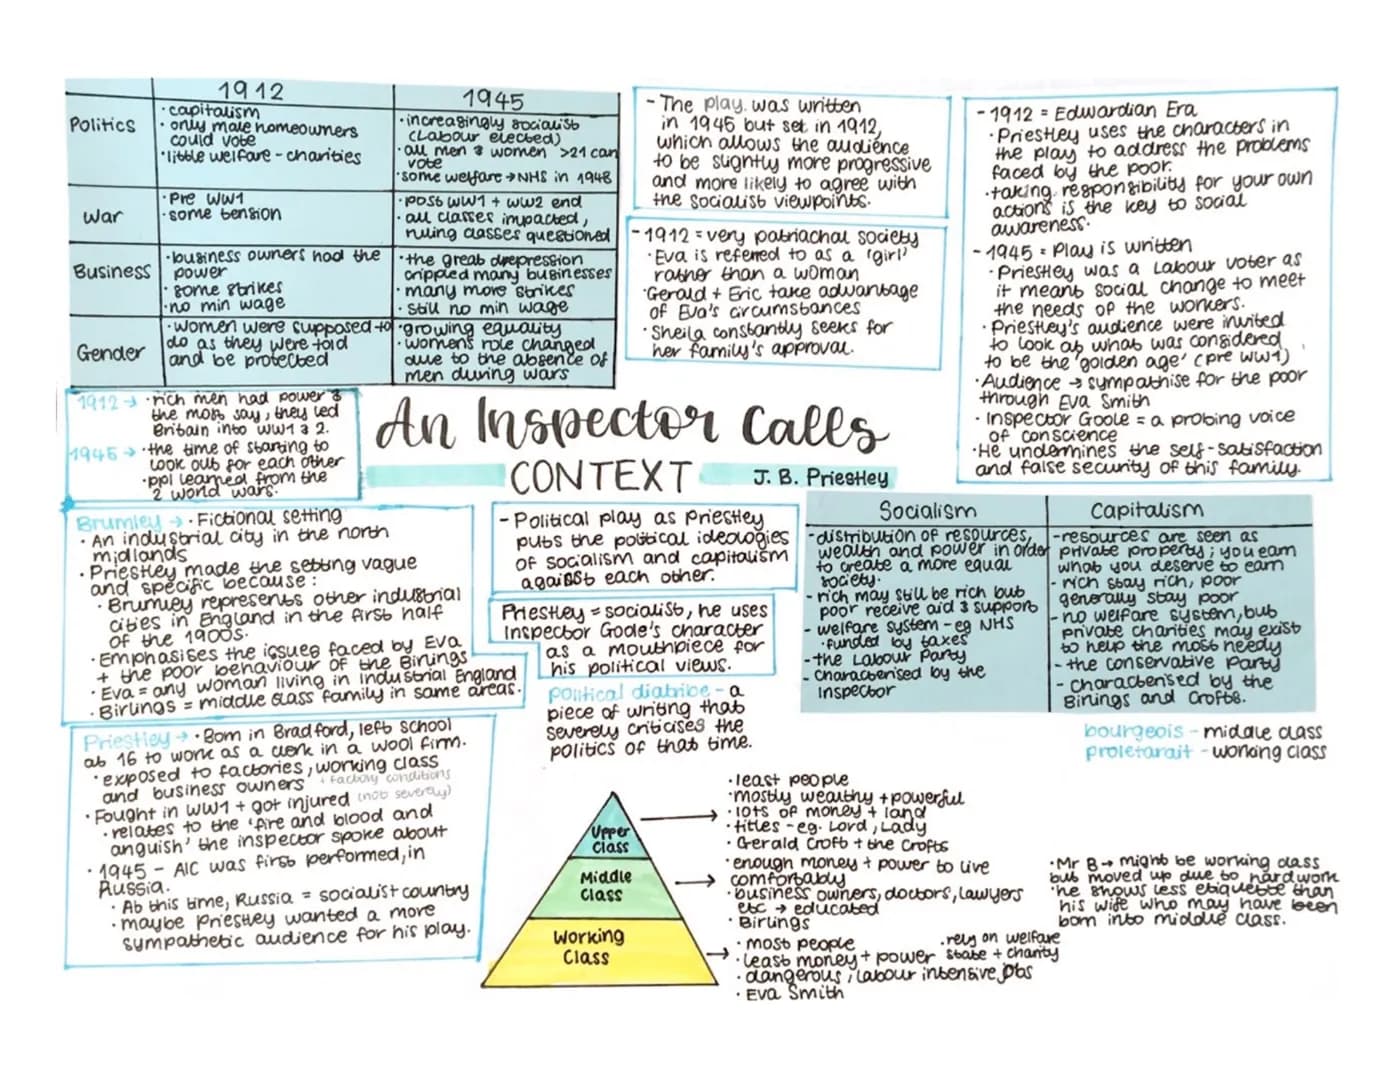 1912
1945
Politics
·capitalism
·only male homeowners
could vote
·little welfare - charities
·increasingly socialist
(Labour elected)
·all men & women >21 can
vote
·some welfare → NHS in 1948
War
·Pre WW1
·some tension
·post WW1 + WW2 end
·all classes impacted,
ruling classes questioned
Business
·business owners had the
power
·some strikes
·no min wage
·the great drepression
crippled many businesses
·many more strikes
·still no min wage
Gender
·women were supposed to
do as they were told
and be protected
·growing equality
·womens role changed
due to the absence of
men during wars
- The play was written
in 1945 but set in 1912,
which allows the audience
to be slightly more progressive
and more likely to agree with
the socialist viewpoints.
- 1912 = very patriachal society
·Eva is referred to as a 'girl'
rather than a woman
·Gerald + Eric take advantage
of Eva's circumstances
·Sheila constantly seeks for
her family's approval.
- 1912 = Edwardian Era
·Priestley uses the characters in
the play to address the problems
faced by the poor.
·taking responsibility for your own
actions is the key to social
awareness.
- 1945 = Play is written
·Priestley was a Labour voter as
it meant social change to meet
the needs of the workers.
·Priestley's audience were invited
to look at what was considered
to be the 'golden age' (pre WW1)
·Audience → sympathise for the poor
through Eva Smith
·Inspector Goole = a probing voice
of conscience
·He undermines the self-satisfaction
and false security of this family.
1912 → ·rich men had power &
the most say, they led
Britain into WW1 & 2.
1945 → ·the time of starting to
look out for each other
·ppl learned from the
2 world wars.
An Inspector Calls
CONTEXT
J. B. Priestley
Brumley → ·Fictional setting
·An industrial city in the north
midlands
·Priestley made the setting vague
and specific because:
·Brumley represents other industrial
cities in England in the first half
of the 1900s.
·Emphasises the issues faced by Eva
+ the poor behaviour of the Birlings
·Eva = any woman living in industrial England
·Birlings = middle class family in same areas.
- Political play as Priestley
puts the political ideologies
of socialism and capitalism
against each other.
Priestley = socialist, he uses
Inspector Goole's character
as a mouthpiece for
his political views.
political diatribe - a
piece of writing that
severely criticises the
politics of that time.
Socialism
-distribution of resources,
wealth and power in order
to create a more equal
society.
- rich may still be rich but
poor receive aid & support
- welfare system - eg NHS
·funded by taxes
- the Labour Party
- characterised by the
Inspector
Capitalism
-resources are seen as
private property; you earn
what you deserve to earn
- rich stay rich, poor
generally stay poor
- no welfare system, but
private charities may exist
to help the most needy
- the conservative party
- characterised by the
Birlings and Crofts.
bourgeois - middle class
proletarait - working class
Priestley → ·Born in Bradford, left school
at 16 to work as a clerk in a wool firm.
·exposed to factories, working class
and business owners + factory conditions
·Fought in WW1 + got injured (not severely)
·relates to the 'fire and blood and
anguish' the inspector spoke about
·1945 - AIC was first performed, in
Russia.
·At this time, Russia = socialist country
·maybe Priestley wanted a more
sympathetic audience for his play.
Upper
Class
Middle
Class
Working
Class
·least people
·mostly wealthy + powerful
·lots of money + land
·titles - eg. Lord, Lady
·Gerald Croft + the Crofts
·enough money + power to live
comfortably
·business owners, doctors, lawyers
etc → educated
·Birlings
·most people
·least money + power
·dangerous, labour intensive jobs
·Eva Smith
·rely on welfare
state + charity
·Mr B → might be working class
but moved up due to hard work
·he shows less etiquette than
his wife who may have been
born into middle class.